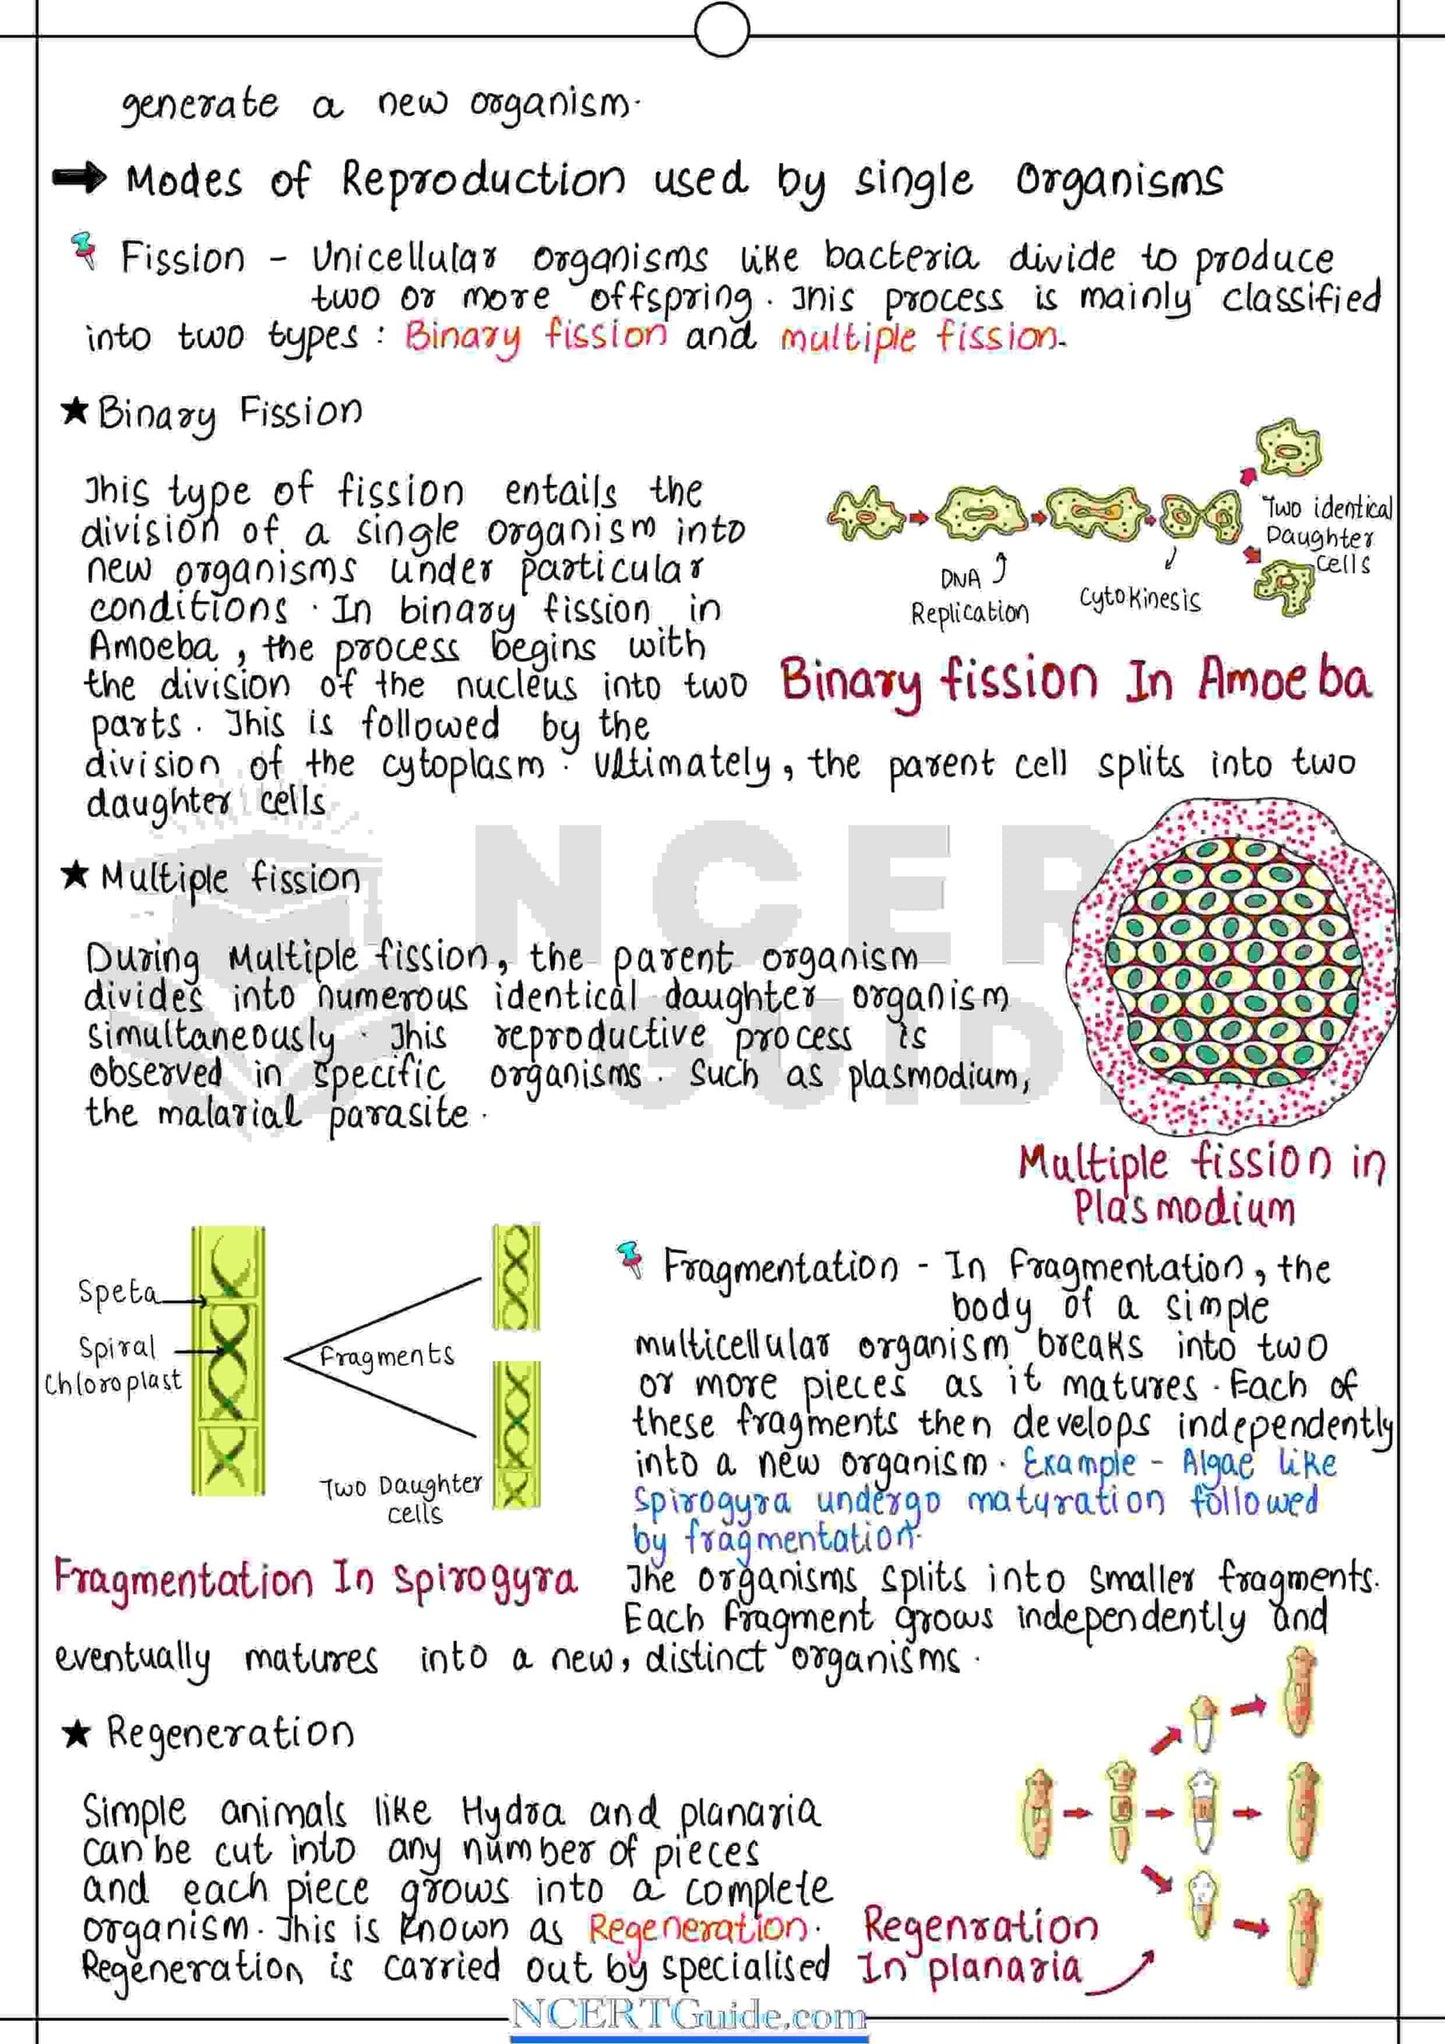 generate a new organism.
➡ Modes of Reproduction used by single Organisms
Fission - Unicellular organisms like bacteria divide to produce
two or more offspring. This process is mainly classified
into two types : Binary fission and multiple fission.
★ Binary Fission
This type of fission entails the
division of a single organism into
new organisms under particular
conditions. In binary fission in
Amoeba, the process begins with
the division of the nucleus into two
parts. This is followed by the
division of the cytoplasm. Ultimately, the parent cell splits into two
daughter cells
DNA
Replication
Cytokinesis
Two identical
Daughter
cells
Binary fission In Amoeba
★ Multiple fission
During Multiple fission, the parent organism
divides into numerous identical daughter organism
simultaneously. This reproductive process is
observed in specific organisms. Such as plasmodium,
the malarial parasite.
Multiple fission in
Plasmodium
Speta
Spiral
Chloroplast
Fragments
Two Daughter
cells
Fragmentation In Spirogyra
Fragmentation - In Fragmentation, the
body of a simple
multicellular organism breaks into two
or more pieces as it matures. Each of
these fragments then develops independently
into a new organism. Example - Algae like
Spirogyra undergo maturation followed
by fragmentation.
The organisms splits into smaller fragments.
Each fragment grows independently and
eventually matures into a new, distinct organisms.
★ Regeneration
Simple animals like Hydra and planaria
can be cut into any number of pieces
and each piece grows into a complete
organism. This is known as Regeneration.
Regeneration is carried out by specialised
Regenration
In planaria
NCERT
GUIDE
NCERTGuide.com